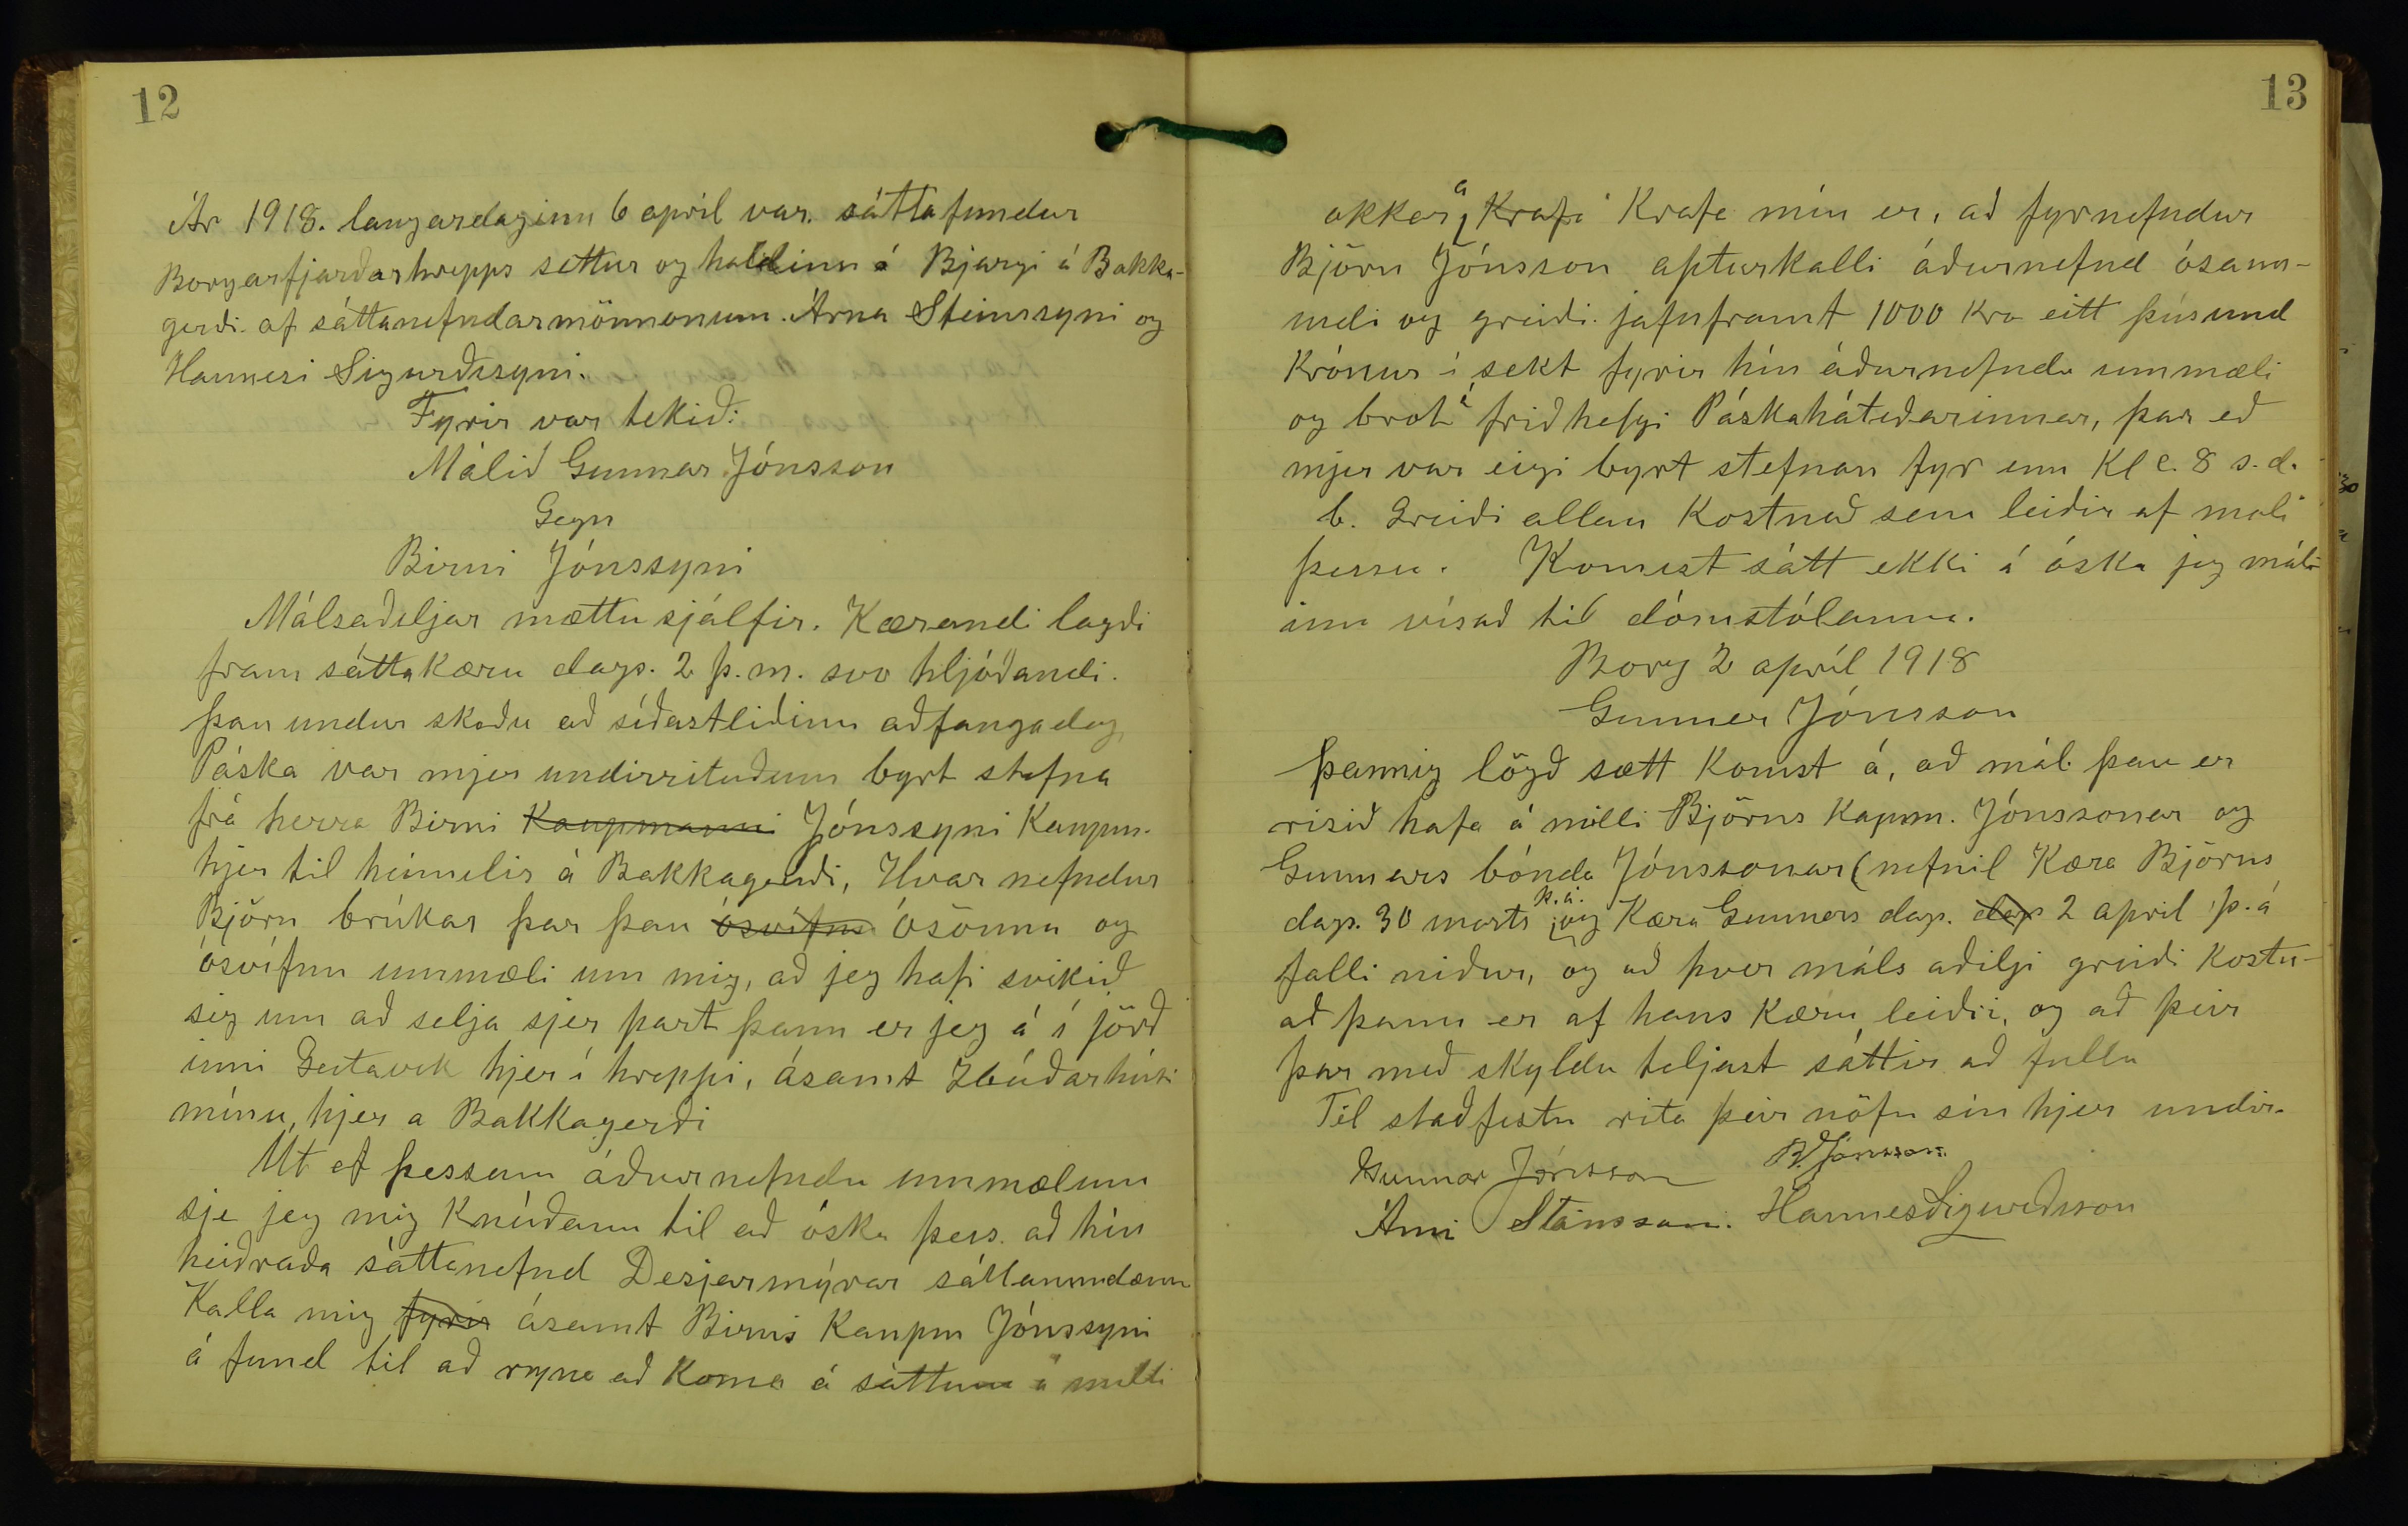 12
Ár 1918. laugardaginn 6 apríl var. sáttafundur
Borgarfjarðarhrepps settur og haldinn á Bjargi á Bakka-
gerði. af sáttanefndarmönnonum. Árna Steinssyni og
Hannesi Sigurðssyni.
Fyrir var tekið:
Málið Gunnar Jónsson
Gegn
Birni Jónssyni
Málsaðiljar mættu sjálfir. Kærandi lagði
fram sáttakæru dags. 2 þ.m. svo hljóðandi.
Þau undur skeðu að síðastliðinn aðfangadag
Páska var mjer undirrituðum byrt stefna
frá herra Birni Kaupmanni Jónssyni Kaupm.
hjer til heimilis á Bakkagerði, Hvar nefndur
Björn brúkar þar þau ósvífnu ósönnu og
ósvífnu ummæli um mig, að jeg hafi svikið
sig um að selja sjer part þann er jeg á í jörð
inni Geitavík hjer í hreppi, ásamt Íbúðarhúsi
mínu, hjer a Bakkagerði
Út af þessum áðurnefndu ummælum
sje jeg mig Knúðann til að óska þess. að hin
heiðraða sáttanefnd Desjarmýrar sáttaumdæmi
Kalla mig fyrir ásamt Birni Kaupm Jónssyni
á fund til að reyna að Koma á sáttum á milli
13
okkar, a Krafi Krafa mín er, að fyrnefndur
Björn Jónsson apturkalli áðurnefnd ósann-
indi og greiði. jafnframt 1000 Kr eitt þúsund
Krónur í sekt fyrir hin áðurnefndu ummæli
og brot á friðhelgi Páskahátíðarinnar, þar eð
mjer var eigi byrt stefnan fyr enn Kl c. 8 s.d.
b. Greiði allan Kostnað sem leiðir af máli
þessu. Komist sátt ekki á óska jeg mál-
inu vísað til dómstólanna.
Borg 2 apríl 1918
Gunnar Jónsson
Þannig löguð sætt Komst á, að mál þau er
risið hafa á milli Björns Kapm. Jónssonar og
Gunnars bónda Jónssonar (nefnil Kæra Björns
dags. 30 marts þ.á. og Kæra Gunnars dags. dags 2 apríl þ.á
falli niður, og að hver máls aðilji greiði Kostn-
að þann er af hans Kæru leiðir, og að þeir
þar með skyldu teljast sáttir að fullu
Til staðfestu rita þeir nöfn sín hjer undir.
Gunnar Jónsson B. Jónsson.
Árni Steinsson. Hannes Sigurðsson